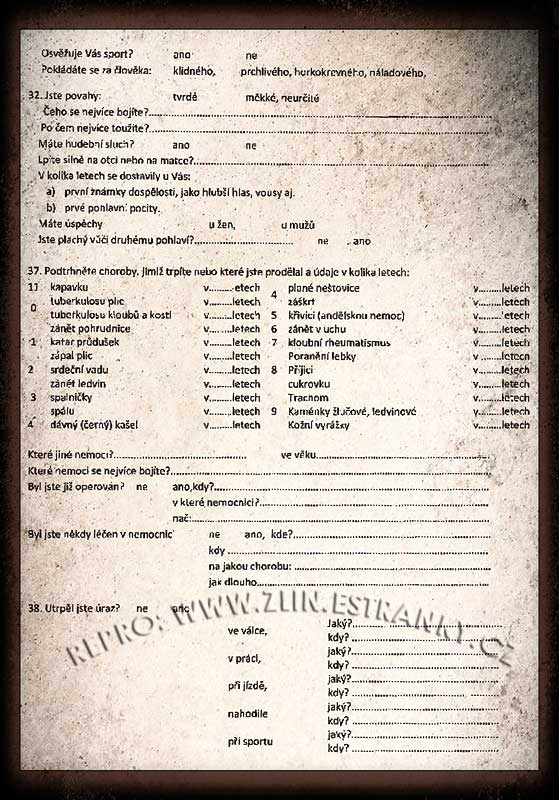 Osvěžuje Vás sport? ano ne
Pokládáte se za člověka: klidného, prchlivého, horkokrevného, náladového,
32. Jste povahy: tvrdé měkké, neurčité
Čeho se nejvíce bojíte?
Po čem nejvíce toužíte?
Máte hudební sluch? ano ne
Lpíte silně na otci nebo na matce?
V kolika letech se dostavily u Vás:
a) první známky dospělosti, jako hlubší hlas, vousy aj.
b) prvé pohlavní pocity.
Máte úspěchy u žen, u mužů
Jste plachý vůči druhému pohlaví? ne ano
37. Podtrhněte choroby, jimiž trpíte nebo které jste prodělal a údaje v kolika letech:
1) kapavku v.........etech 4 plané neštovice v.........letech
0 tuberkulosu plic v.........letech záškrt v.........letech
tuberkulosu kloubů a kostí v.........letech 5 křivici (andělskou nemoc) v.........letech
zánět pohrudnice v.........letech 6 zánět v uchu v.........letech
1 katar průdušek v.........letech 7 kloubní rheumatismus v.........letech
zápal plic v.........letech Poranění lebky v.........letech
2 srdeční vadu v.........letech 8 Příjici v.........letech
zánět ledvin v.........letech cukrovku v.........letech
3 spalničky v.........letech Trachom v.........letech
spálu v.........letech 9 Kaménky žlučové, ledvinové v.........letech
4 dávný (černý) kašel v.........letech Kožní vyrážky v.........letech
Které jiné nemoci? ve věku
Které nemoci se nejvíce bojíte?
Byl jste již operován? ne ano,kdy?
v které nemocnici?
nač:
Byl jste někdy léčen v nemocnic ne ano, kde?
kdy
na jakou chorobu:
jak dlouho
38. Utrpěl jste úraz? ne ano
ve válce, Jaký?
kdy?
v práci, jaký?
kdy?
při jízdě, jaký?
kdy?
nahodile jaký?
kdy?
při sportu jaký?
kdy?
RLPRO: WWW.ZLIN.ESTRANKY.CZ